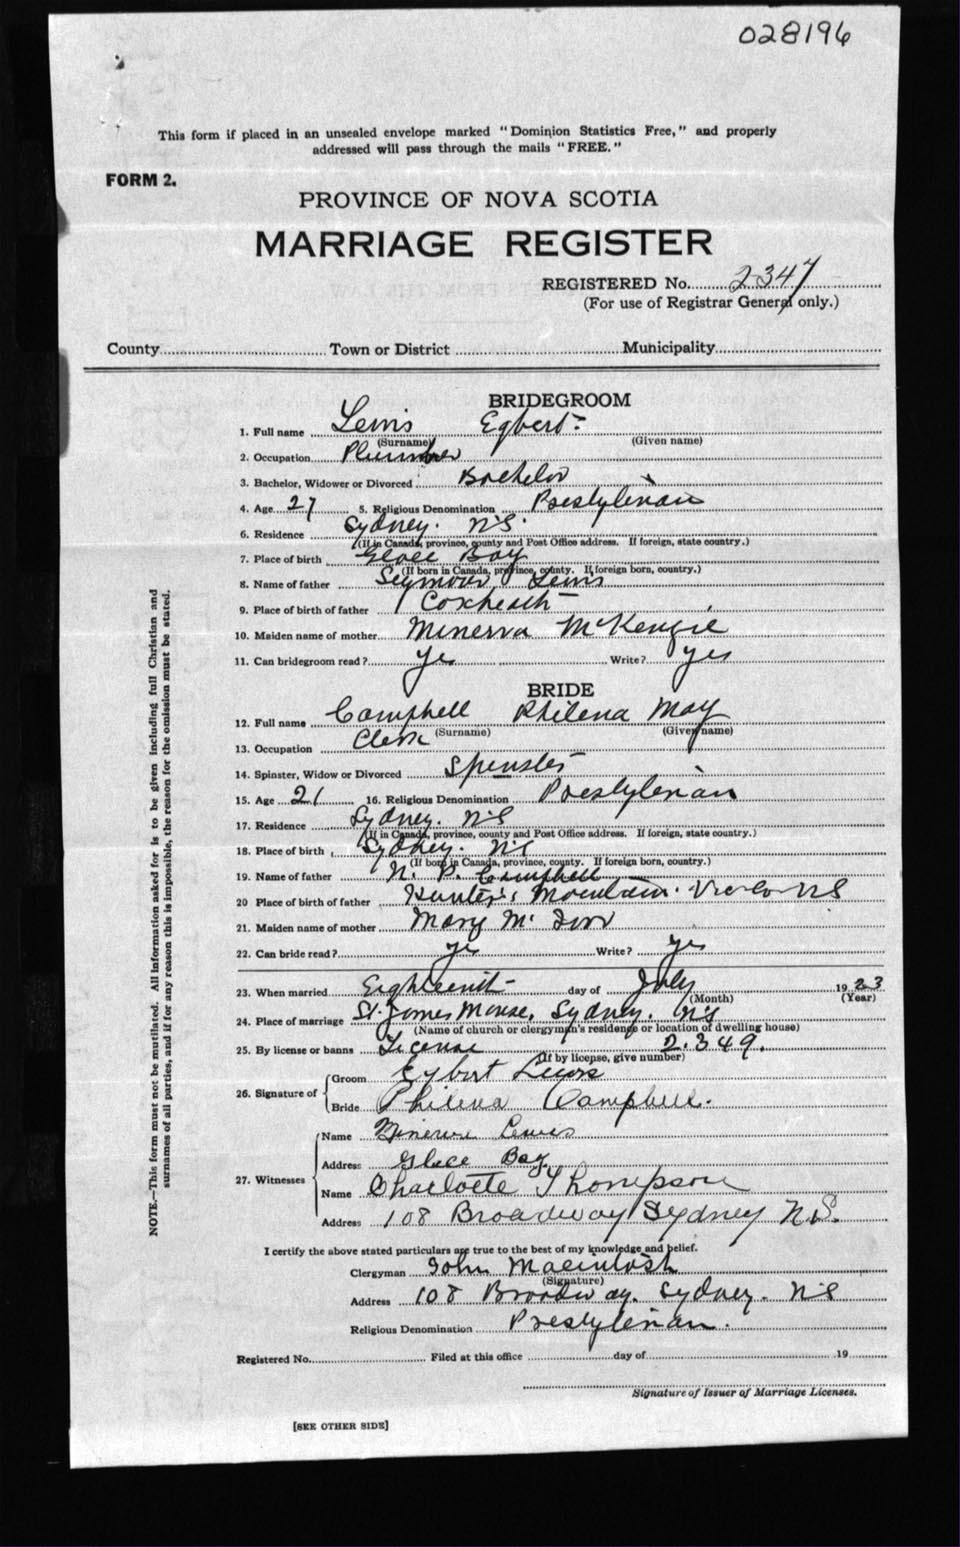 028196
This form if placed in an unsealed envelope marked "Dominion Statistics Free," and properly
addressed will pass through the mails "FREE."
FORM 2.
PROVINCE OF NOVA SCOTIA
MARRIAGE REGISTER
REGISTERED No. 2347
(For use of Registrar General only.)
County Town or District Municipality
BRIDEGROOM
1. Full name Lewis Egbert
(Surname) (Given name)
2. Occupation Plumber
3. Bachelor, Widower or Divorced Bachelor
4. Age 27 5. Religious Denomination Presbyterian
6. Residence Sydney. N.S.
(If in Canada, province, county and Post Office address. If foreign, state country.)
7. Place of birth Glace Bay
(If born in Canada, province, county. If foreign born, country.)
8. Name of father Seymour Lewis
9. Place of birth of father Coxheath
10. Maiden name of mother Minerva McKenzie
11. Can bridegroom read? yes Write? yes
BRIDE
12. Full name Campbell Philena May
(Surname) (Given name)
13. Occupation Clerk
14. Spinster, Widow or Divorced Spinster
15. Age 21 16. Religious Denomination Presbyterian
17. Residence Sydney. N.S
(If in Canada, province, county and Post Office address. If foreign, state country.)
18. Place of birth Sydney. N.S
(If born in Canada, province, county. If foreign born, country.)
19. Name of father N. P. Campbell
20 Place of birth of father Hunter's Mountain. Vic Co N S
21. Maiden name of mother Mary Mc
22. Can bride read? yes Write? yes
23. When married Eighteenth day of July 1923
(Month) (Year)
24. Place of marriage St. James Manse, Sydney. N.S
(Name of church or clergyman's residence or location of dwelling house)
25. By license or banns License 2.349.
(If by license, give number)
26. Signature of Groom Egbert Lewis
Bride Philena Campbell.
27. Witnesses Name Minerva Lewis
Address Glace Bay
Name Charlotte Thompson
Address 108 Broadway Sydney N.S.
I certify the above stated particulars are true to the best of my knowledge and belief.
Clergyman John Macintosh
(Signature)
Address 108 Broadway. Sydney. N S
Religious Denomination Presbyterian.
Registered No. Filed at this office day of 19
Signature of Issuer of Marriage Licenses.
[SEE OTHER SIDE]
NOTE.—This form must not be mutilated. All information asked for is to be given including full Christian and
surnames of all parties, and if for any reason this is impossible, the reason for the omission must be stated.